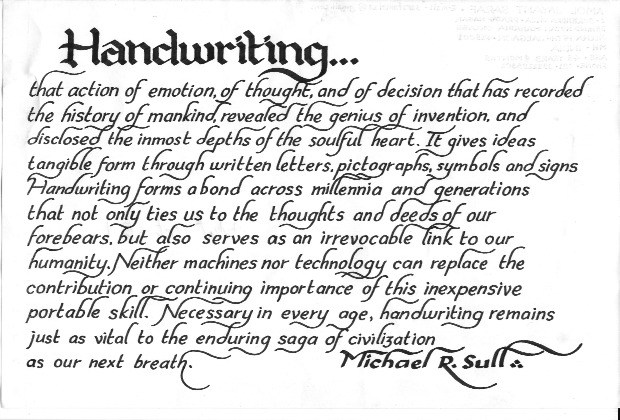 Handwriting...
that action of emotion, of thought, and of decision that has recorded
the history of mankind, revealed the genius of invention, and
disclosed the inmost depths of the soulful heart. It gives ideas
tangible form through written letters, pictographs, symbols and signs
Handwriting forms a bond across millennia and generations
that not only ties us to the thoughts and deeds of our
forebears, but also serves as an irrevocable link to our
humanity. Neither machines nor technology can replace the
contribution or continuing importance of this inexpensive
portable skill. Necessary in every age, handwriting remains
just as vital to the enduring saga of civilization
as our next breath.
Michael R. Sull